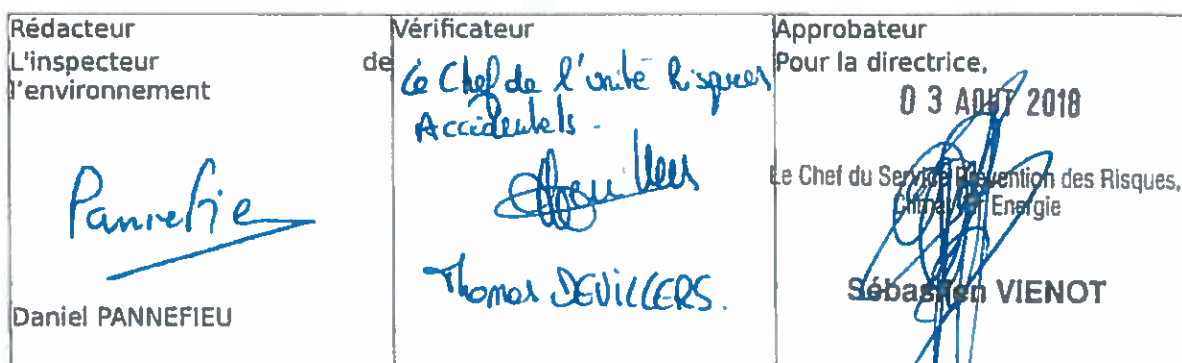 Rédacteur
L'inspecteur de
l'environnement
Pannefie
Daniel PANNEFIEU
Vérificateur
Le Chef de l'unité Risques
Accidentels.
Thomas DEVILLERS.
Approbateur
Pour la directrice,
0 3 AOUT 2018
Le Chef du Service Prévention des Risques,
Climat Energie
Sébastien VIENOT